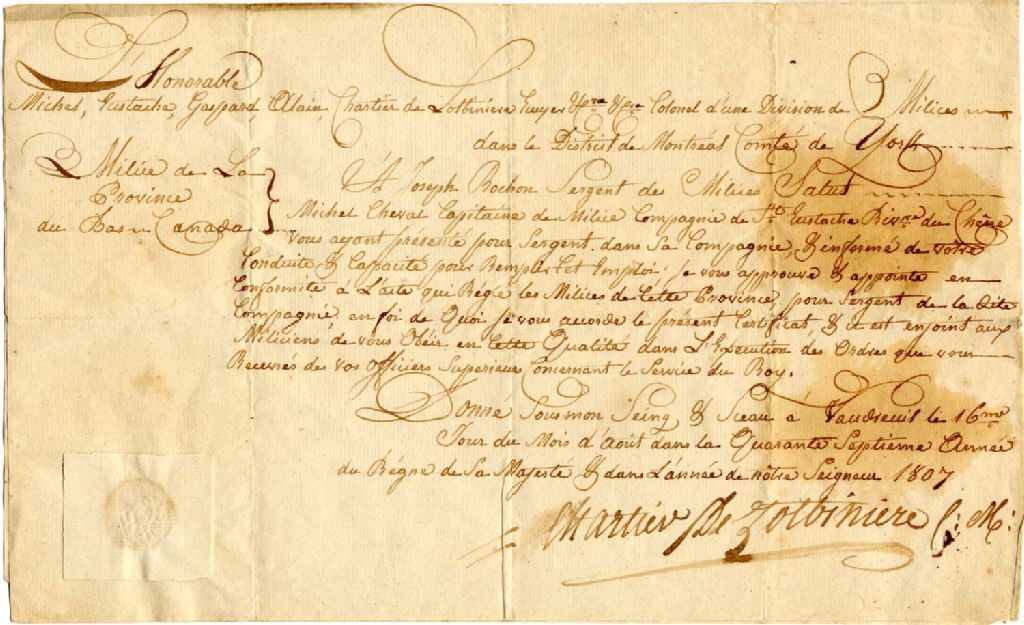 L'Honorable
Michel, Eustache, Gaspard, Alain, Chartier de Lotbiniere Ecuyer &cra &cra Colonel d'une Division de Milices
dans le District de Montréal Comté de York
Milice de La
Province
du Bas Canada
A Joseph Rochon Sergent des Milices Salut
Michel Cheval Capitaine de Milice Compagnie de St. Eustache Rivre. du Chêne
vous ayant présenté pour Sergent dans Sa Compagnie, & informé de votre
Conduite & Capacité pour Remplir Cet Emploi. Je vous approuve & appointe en
Conformité à L'acte qui Règle les Milices de Cette Province, pour Sergent de la dite
Compagnie, en foi de Quoi je vous accorde le présent Certificat, & il est enjoint aux
Miliciens de vous Obéir en Cette Qualité dans L'Execution des Ordres que vous
Recevrés de vos Officiers Superieurs Concernant le Service du Roy.
Donné Sous mon Seing & Sceau à Vaudreuil le 16me
Jour du Mois d'Août dans la Quarante Septieme Année
du Régne de Sa Majesté & dans L'année de nôtre Seigneur 1807
Chartier De Lotbiniere C: M: